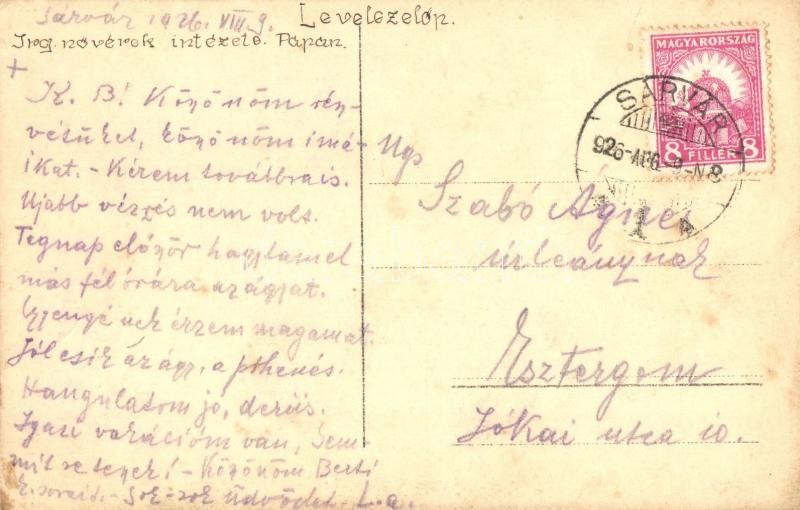 Sárvár 1926. VIII. 9.
Levelezőlap.
Irg. nővérek intézete. Pápán.
+
K. B! Köszönöm rész-
vésüket, köszönöm imá-
ikat. - Kérem továbbrais.
Ujabb vérzés nem volt.
Tegnap először hagytam el
más fél órára az ágyat.
Gyengének érzem magamat.
Jól esik az ágy, a pihenés.
Hangulatom jó, derűs.
Igazi vakációm van, sem-
mit se teszek! - Köszönöm Berti
k. sorait. - Sok-sok üdvözlet - L.a.
MAGYARORSZÁG
8 FILLÉR 8
SÁRVÁR
926 - AUG. 9 - N 8
1
Ngs
Szabó Ágnes
úrleánynak
Esztergom
Jókai utca 10.